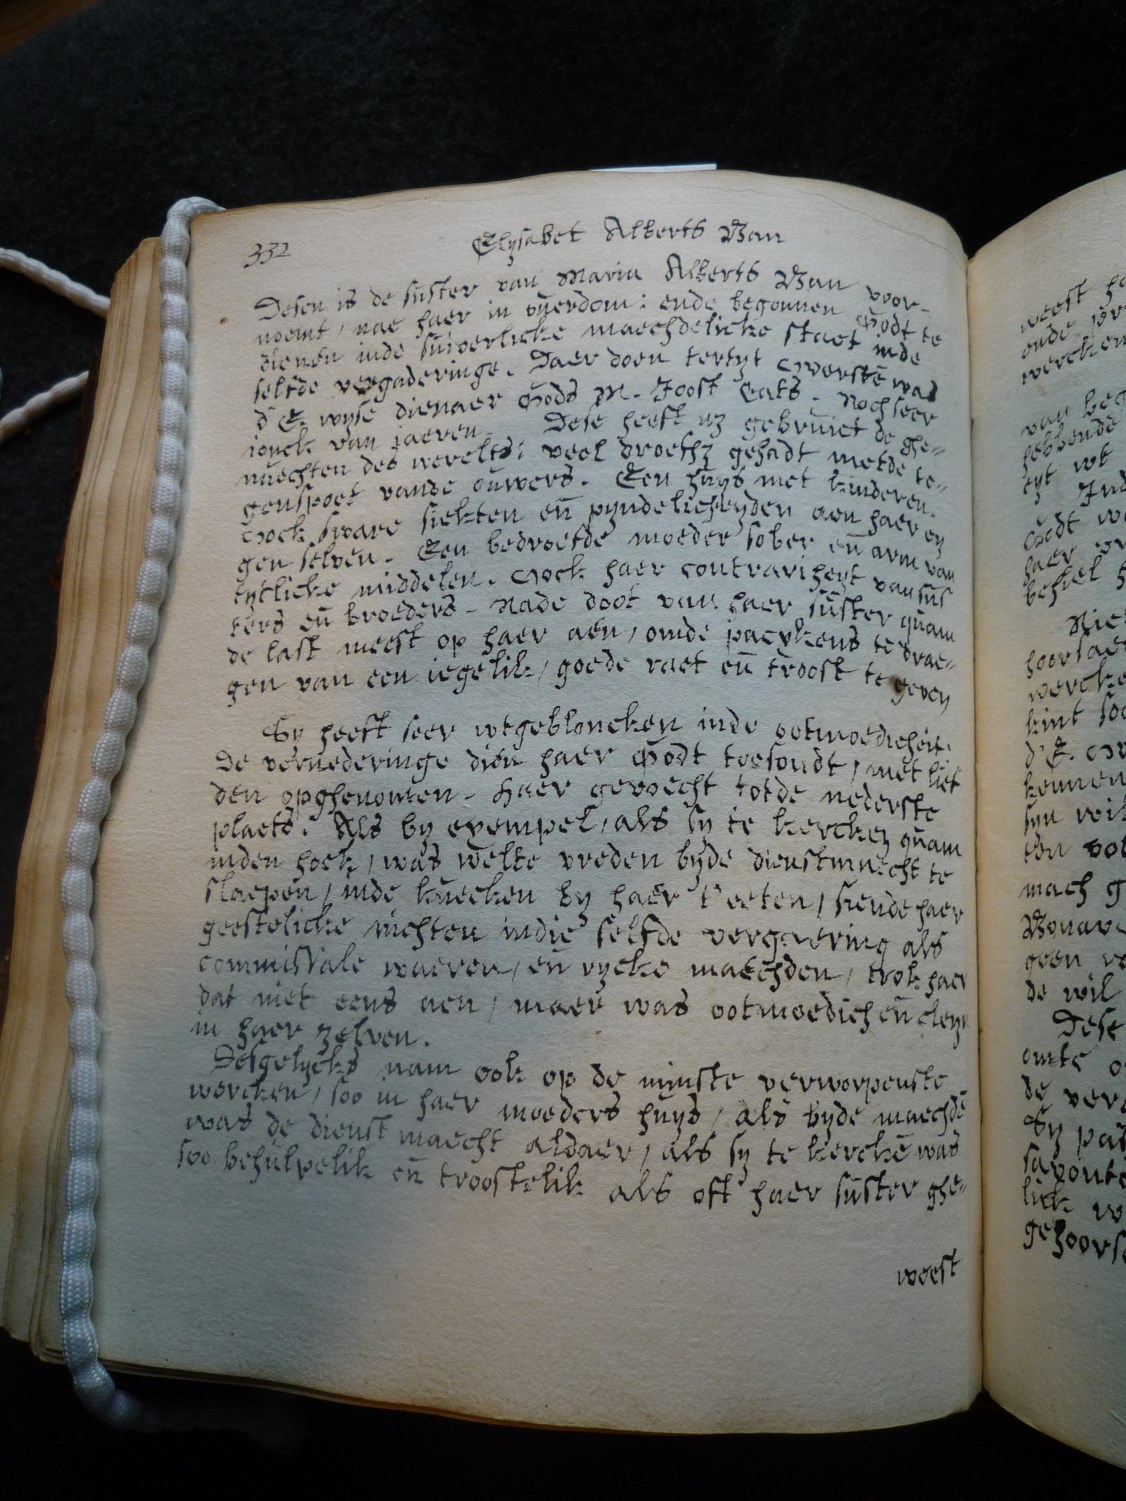 332
Elysabet Alberts Ban
Desen is de suster van Maria Alberts Ban voor-
noemt, nae haer in oyerdom: ende begonnen Godt te
dienen inde suiverlicke maechdelicke staet inde
selfde vergaderinge. Daer doen tertyt overste was
d' E. wyse dienaer Gods M. Joost Cats. Noch seer
jonck van jaeren. Dese heeft uz gebruict de ghe-
nuechten des werelts: veel droefhz gehadt metde te-
genspoet vande ouwers. Een huys met kinderen.
Oock sware siekten eñ pyndelicheyden aen haer ey
gen selven. Een bedroefde moeder sober eñ arm van
tytlicke middelen. Oock haer contrariheyt van sus
ters eñ broeders. Nade doot van haer suster quam
de last meest op haer aen, omde packens te drae-
gen van een iegelik, goede raet eñ troost te geven
Sy heeft seer wtgebloncken inde ootmoedicheit.
De vernederinge dien haer Godt toesondt, met lief
den opghenomen. Haer gevoecht totde nederste
plaets. Als by exempel, als sy te kercken quam
inden hoek, was welte vreden byde dienstmaecht te
slaepen, inde kuecken by haer t' eeten, siende haer
geestelicke nichten indie selfde vergaering als
commissale waeren, eñ rycke maechden, trok haer
dat niet eens aen, maer was ootmoedich eñ cleyn
in haer zelven.
Desgelycks nam ook op de minste verworpenste
wercken, soo in haer moeders huys, als byde maechdē
was de dienstmaecht aldaer, als sy te kerckē was
soo behulpelik eñ troostelik als oft haer suster ghe-
weest